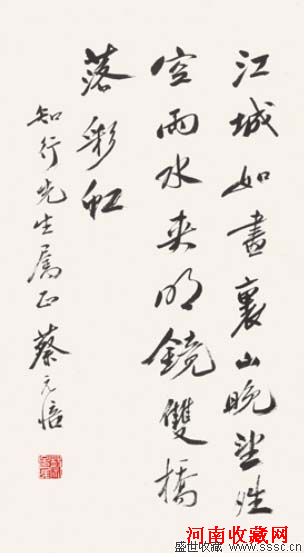 江城如畫裏山晚望晴
空兩水夾明鏡雙橋
落彩虹
知行先生屬正 蔡元培
河南收藏网
盛世收藏 www.sssc.cn